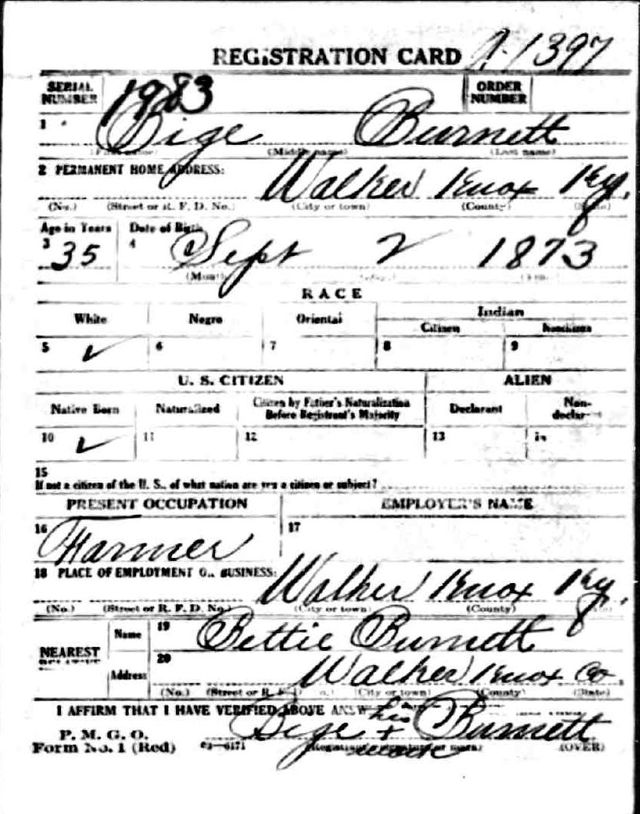 REGISTRATION CARD A-1397
SERIAL NUMBER 1983 ORDER NUMBER
1 Bige Burnett
(First name) (Middle name) (Last name)
2 PERMANENT HOME ADDRESS: Walker Knox Ky.
(No.) (Street or R. F. D. No.) (City or town) (County) (State)
Age in Years Date of Birth
3 35 4 Sept 2 1873
(Month) (Day) (Year)
RACE
White Negro Oriental Indian
Citizen Noncitizen
5 ✓ 6 7 8 9
U. S. CITIZEN ALIEN
Native Born Naturalized Citizen by Father's Naturalization Before Registrant's Majority Declarant Non-declarant
10 ✓ 11 12 13 14
15
If not a citizen of the U. S., of what nation are you a citizen or subject?
PRESENT OCCUPATION EMPLOYER'S NAME
16 Farmer 17
18 PLACE OF EMPLOYMENT OR BUSINESS: Walker Knox Ky.
(No.) (Street or R. F. D. No.) (City or town) (County)
NEAREST RELATIVE Name 19 Bettie Burnett
Address 20 Walker Knox Co.
(No.) (Street or R. F. D. No.) (City or town) (County) (State)
I AFFIRM THAT I HAVE VERIFIED ABOVE
P. M. G. O.
Form No. 1 (Red) 03-6171 Bige his + mark Burnett
(Registrant's signature or mark) (OVER)